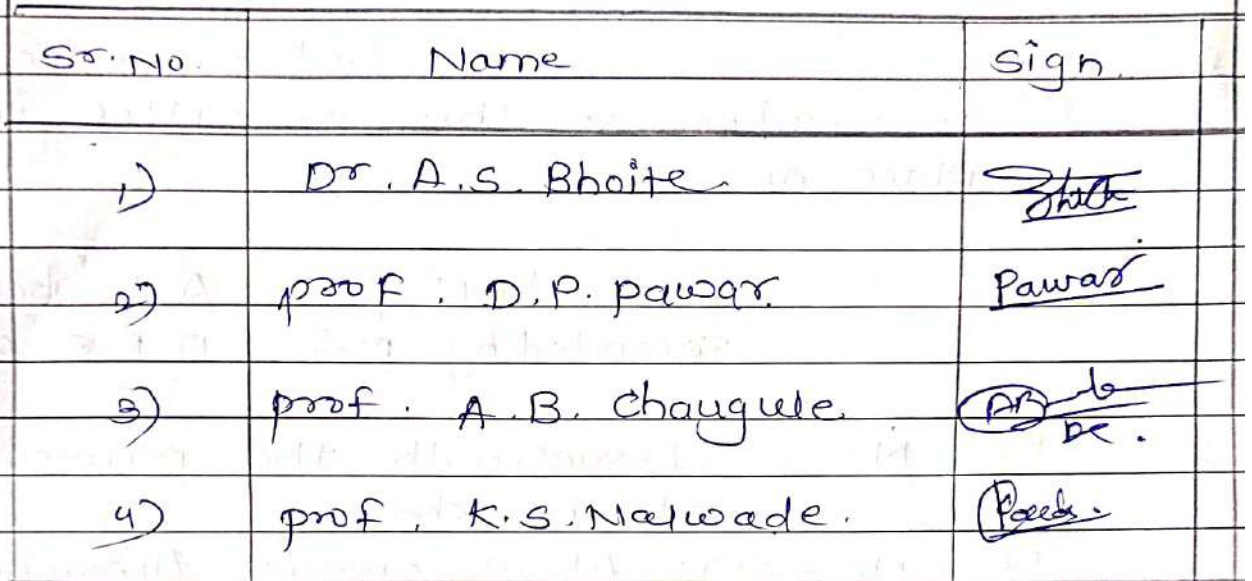 Sr. No. Name Sign.
1) Dr. A.S. Bhoite
2) prof. D.P. pawar. Pawar
3) prof. A.B. Chaugule
4) prof. K.S. Nalwade.